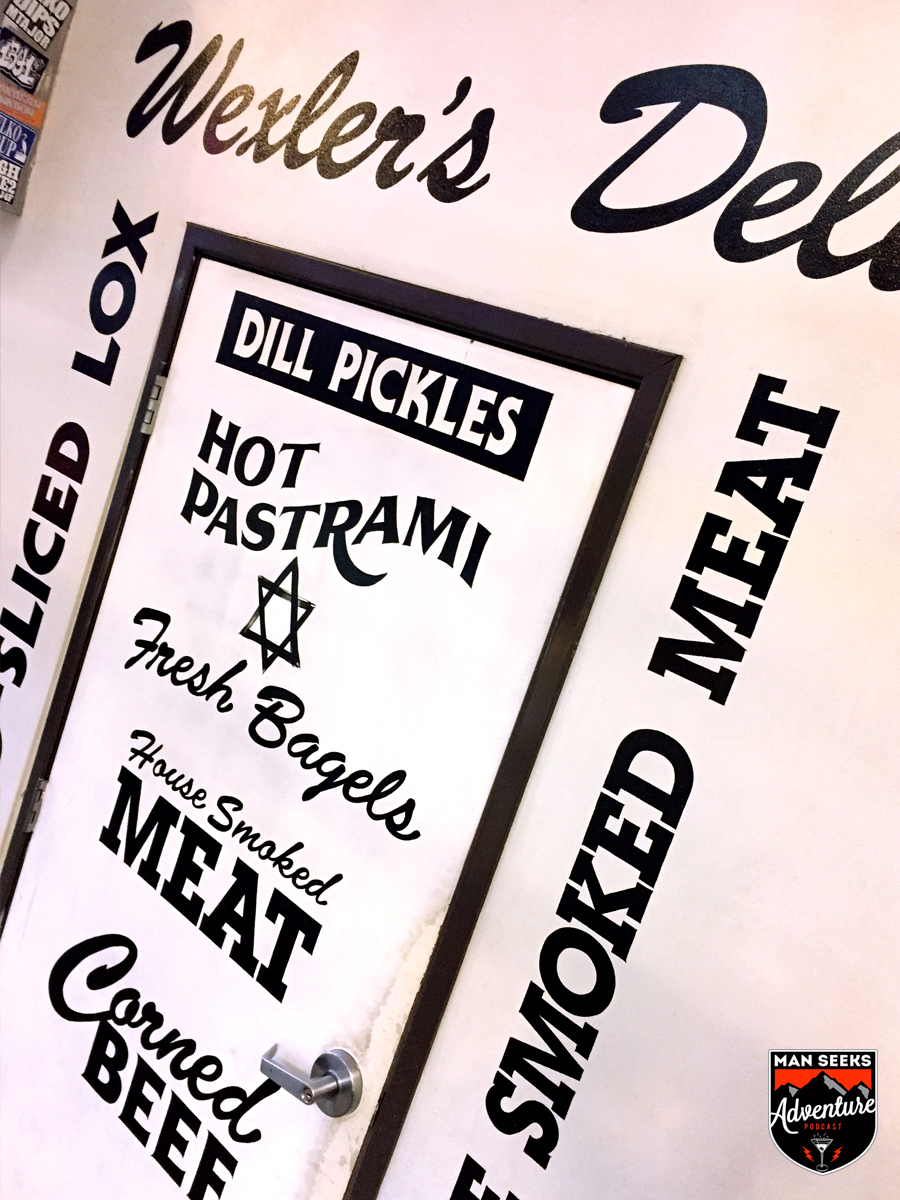 Wexler's Del
SLICED LOX
DILL PICKLES
HOT
PASTRAMI
Fresh Bagels
House Smoked
MEAT
Corned
BEEF
SMOKED MEAT
MAN SEEKS
Adventure
PODCAST